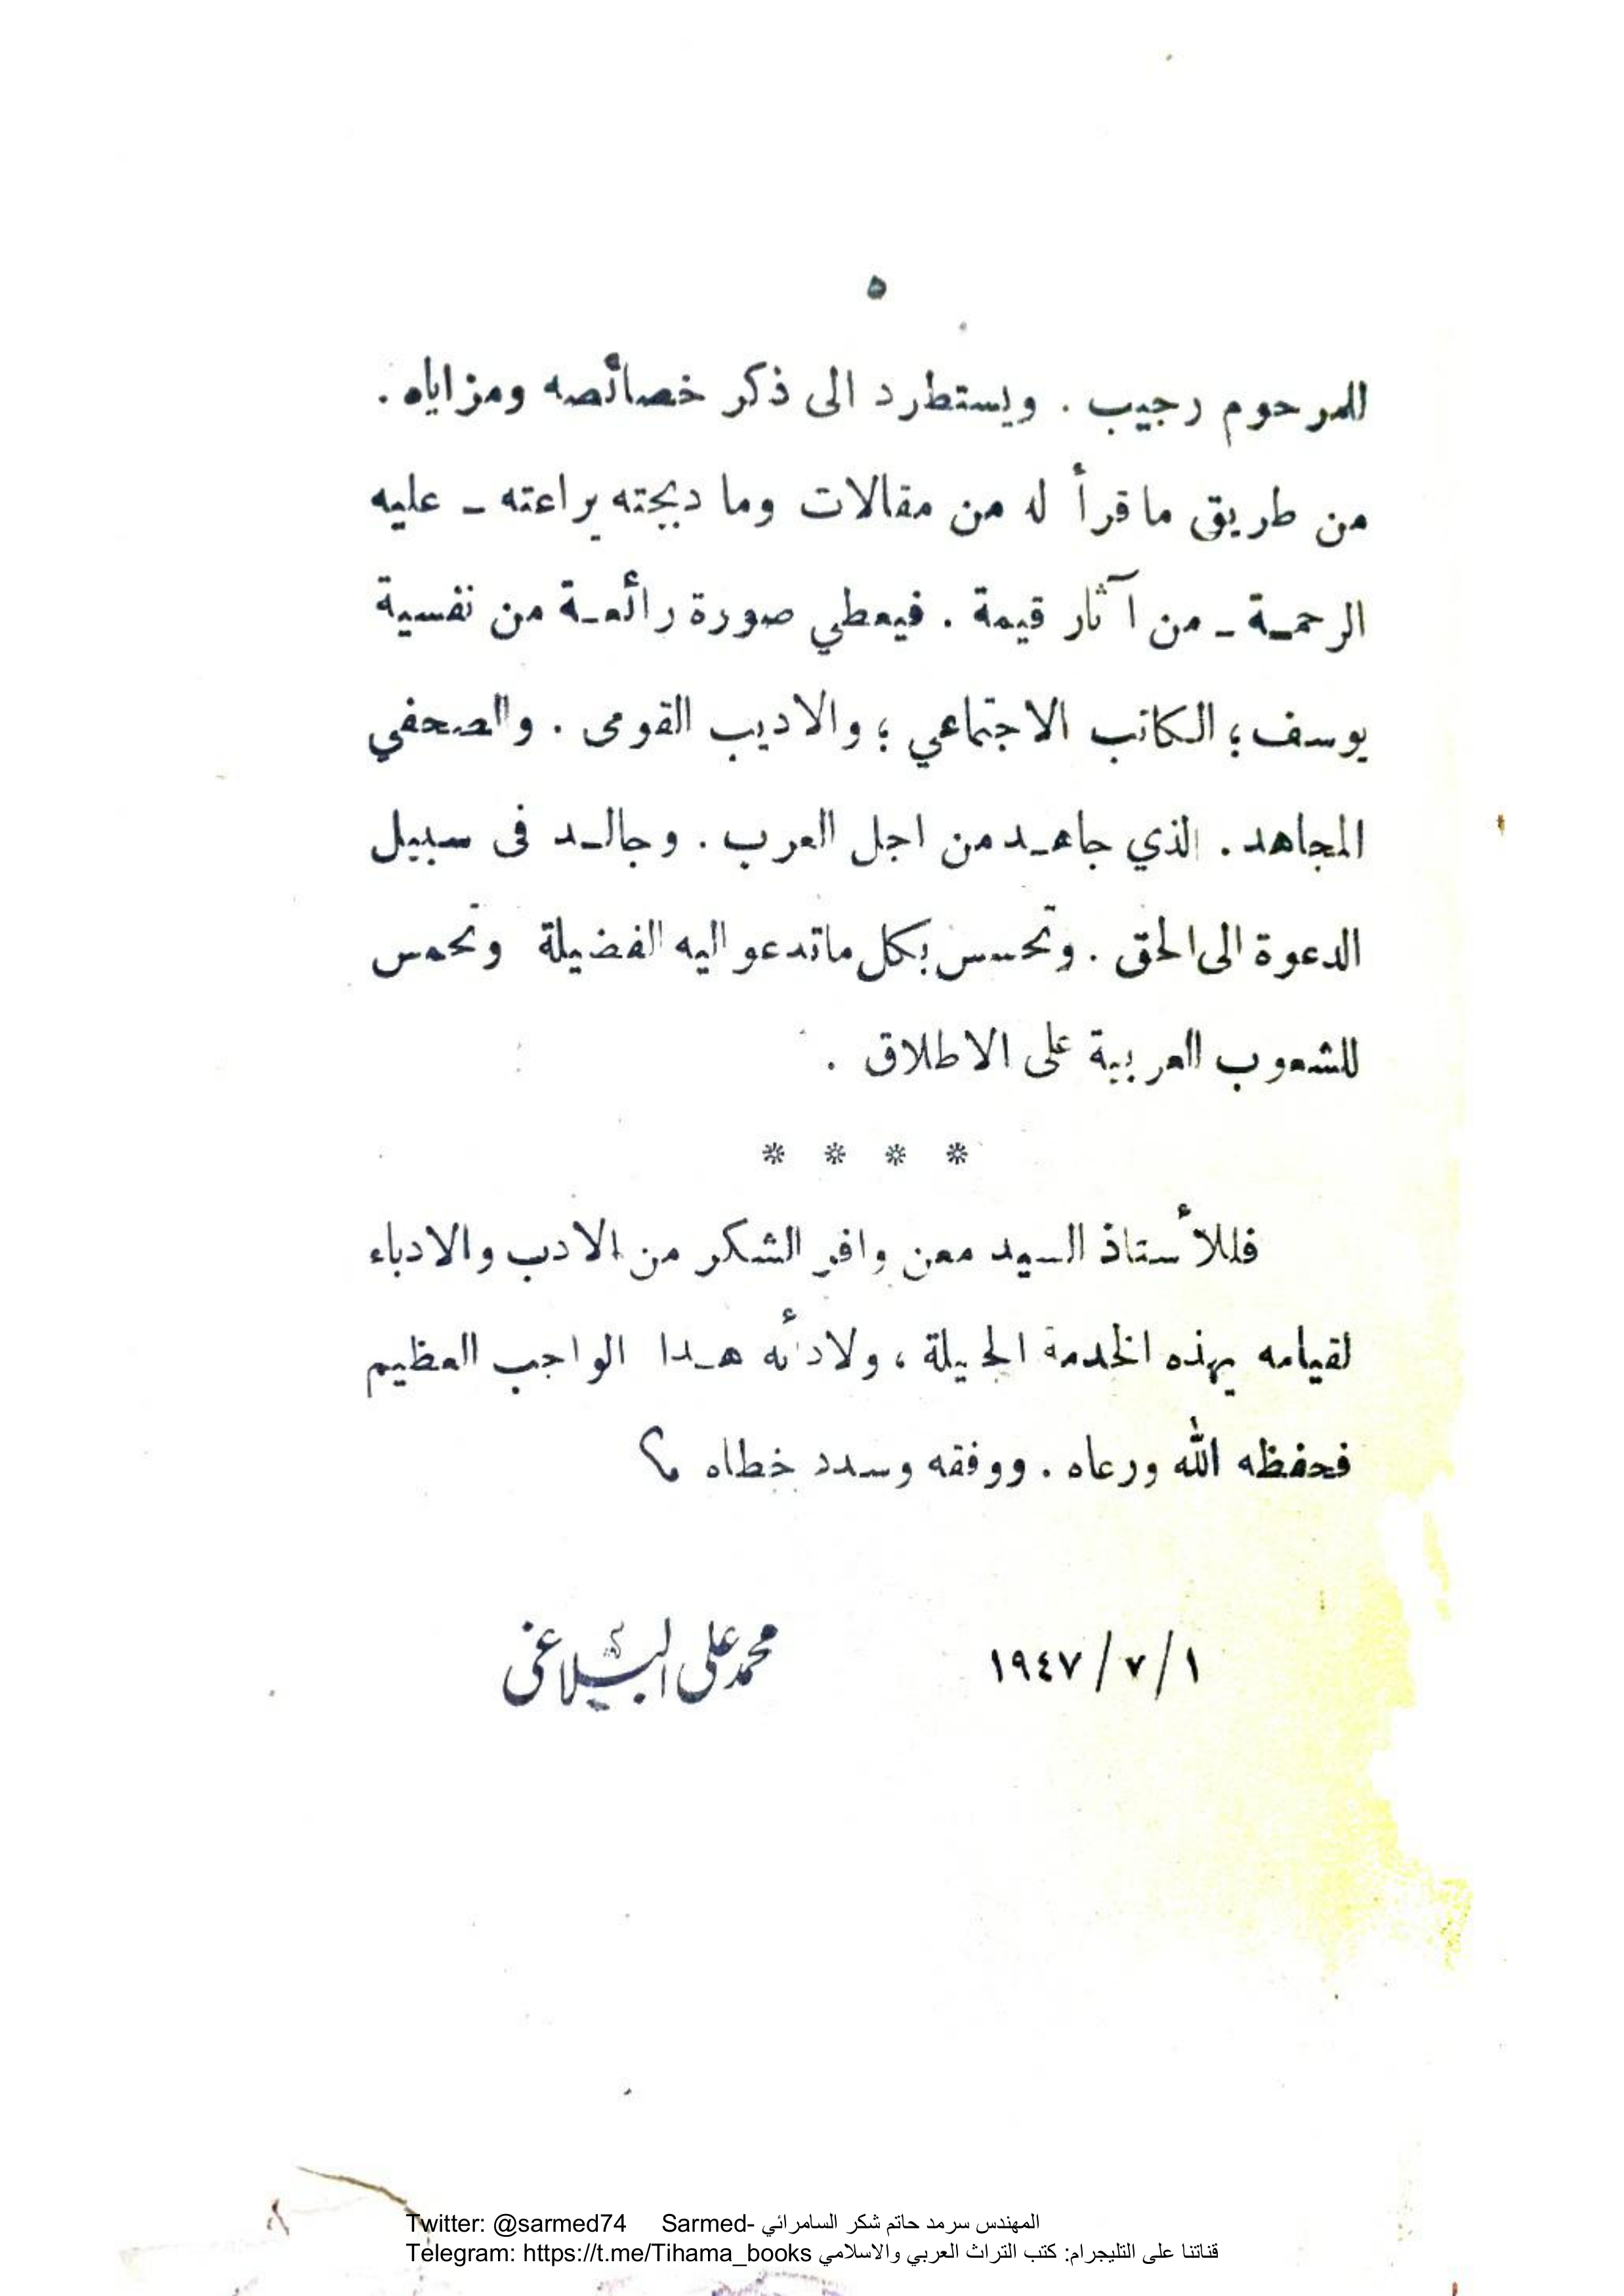 ٥
للمرحوم رجيب . ويستطرد الى ذكر خصائصه ومزاياه .
من طريق ماقرأ له من مقالات وما دبجته براعته ـ عليه
الرحمـة ـ من آثار قيمة . فيعطي صورة رائعـة من نفسية
يوسف ؛ الكاتب الاجتماعي ؛ والاديب القومى . والصحفي
المجاهد . الذي جاهـد من اجل العرب . وجالـد فى سبيل
الدعوة الى الحق . وتحسس بكل ماتدعو اليه الفضيلة وتحمس
للشعوب العربية على الاطلاق .
* * * *
فللأستاذ السيد معن وافر الشكر من الادب والادباء
لقيامه بهذه الخدمة الجليلة ، ولادائه هـذا الواجب العظيم
فحفظه الله ورعاه . ووفقه وسدد خطاه
١/ ٧ / ١٩٤٧ محمد علي البلاغي
Twitter: @sarmed74 Sarmed- المهندس سرمد حاتم شكر السامرائي
Telegram: https://t.me/Tihama_books قناتنا على التليجرام: كتب التراث العربي والاسلامي